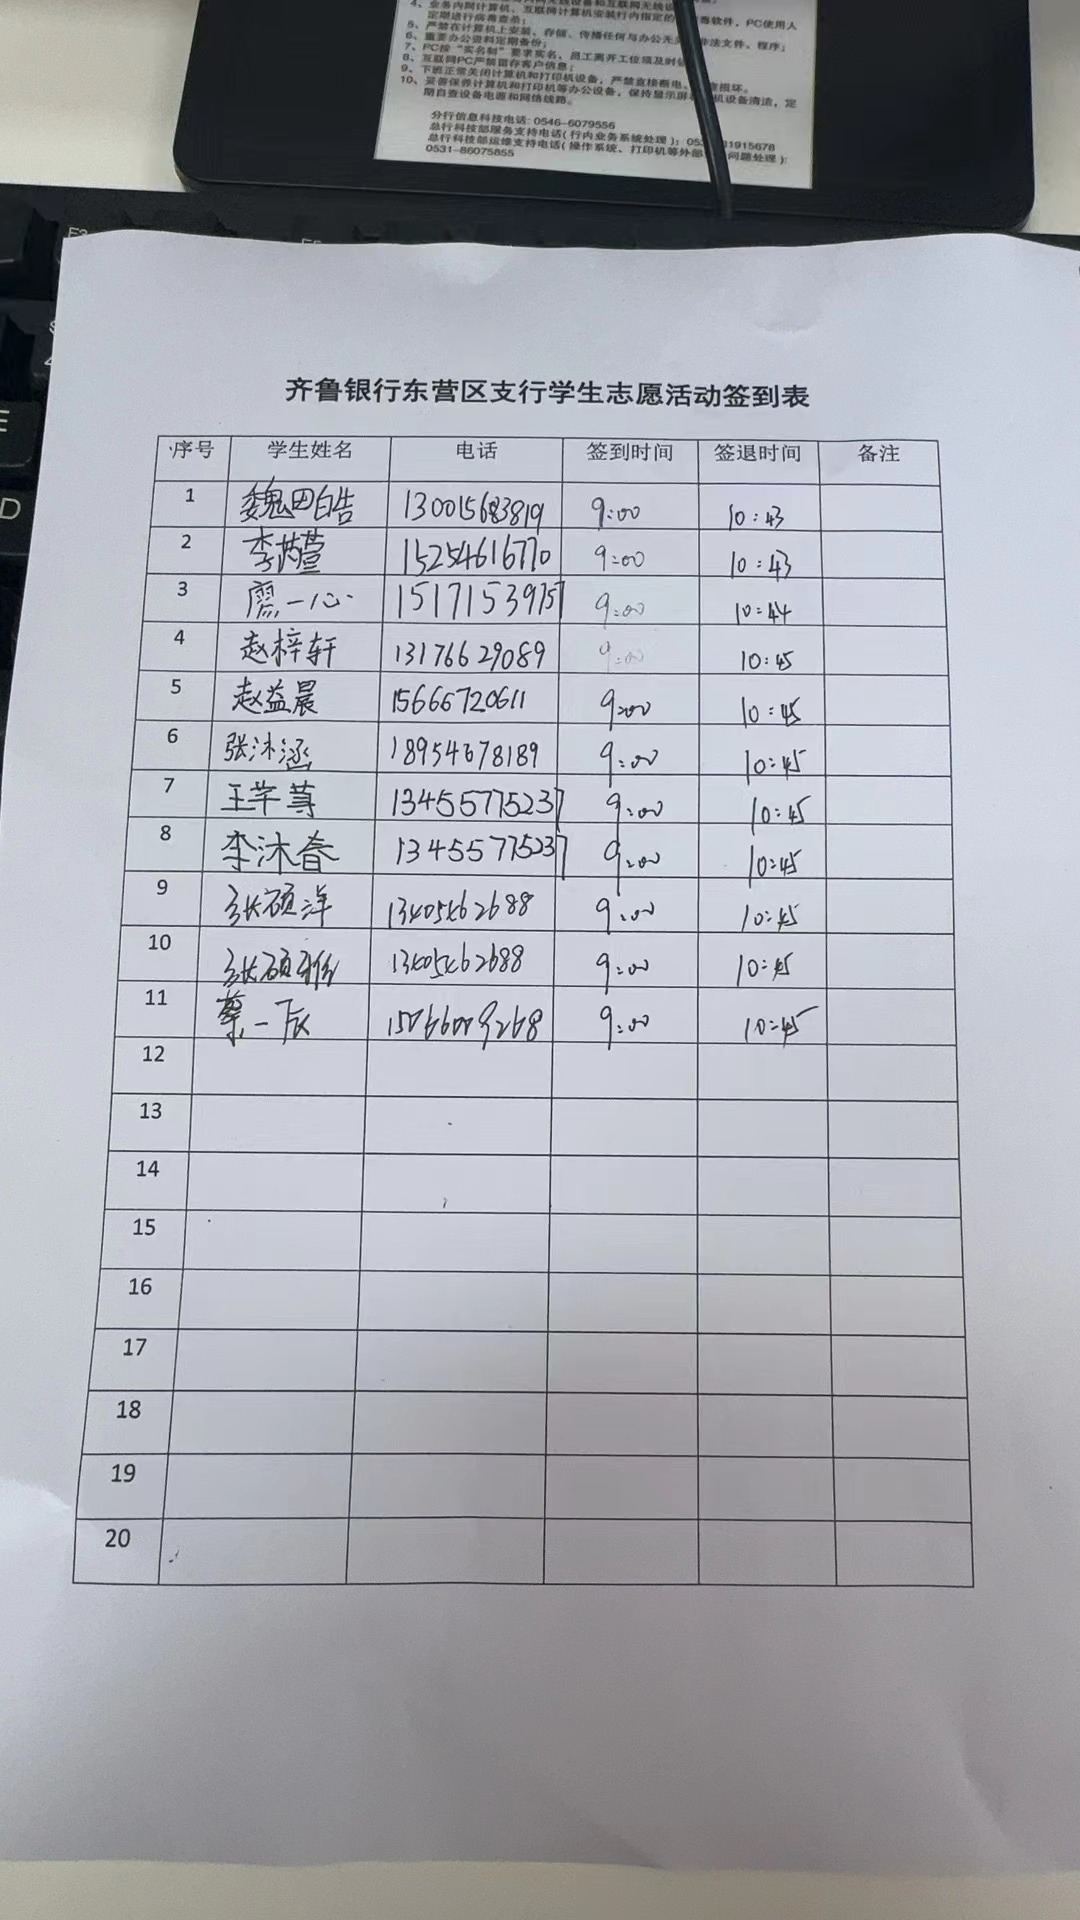 4、业务内网计算机、互联网计算机安装行内指定的 毒软件，PC使用人
定期进行病毒查杀；
5、严禁在计算机上安装、存储、传播任何与办公无 非法文件、程序；
6、重要办公资料定期备份；
7、PC按“实名制”要求实名，员工离开工位须及时
8、互联网PC严禁留存客户信息；
9、下班正常关闭计算机和打印机设备，严禁直接断电、 损坏。
10、妥善保养计算机和打印机等办公设备，保持显示屏 机设备清洁，定
期自查设备电源和网络线路。
分行信息科技电话: 0546-6079556
总行科技部服务支持电话（行内业务系统处理）: 053 81915678
总行科技部运维支持电话（操作系统、打印机等外部 问题处理）:
0531-86075855
齐鲁银行东营区支行学生志愿活动签到表
序号 学生姓名 电话 签到时间 签退时间 备注
1 魏田皓 130015683819 9:00 10:43
2 李芮萱 15254616770 9:00 10:43
3 廖一心 15171539757 9:00 10:44
4 赵梓轩 13176629089 9:00 10:45
5 赵益晨 15666720611 9:00 10:45
6 张沐涵 18954678189 9:00 10:45
7 王芊 13455775237 9:00 10:45
8 李沐春 13455775237 9:00 10:45
9 张硕洋 13405462688 9:00 10:45
10 张硕 13405462688 9:00 10:45
11 一辰 15066009268 9:00 10:45
12
13
14
15
16
17
18
19
20